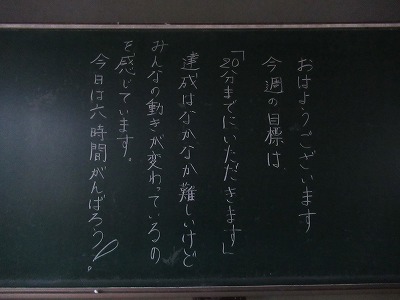 おはようございます
今週の目標は
「20分までにいただきます」
達成はなかなか難しいけど
みんなの動きが変わっているの
を感じています。
今日は六時間がんばろう！